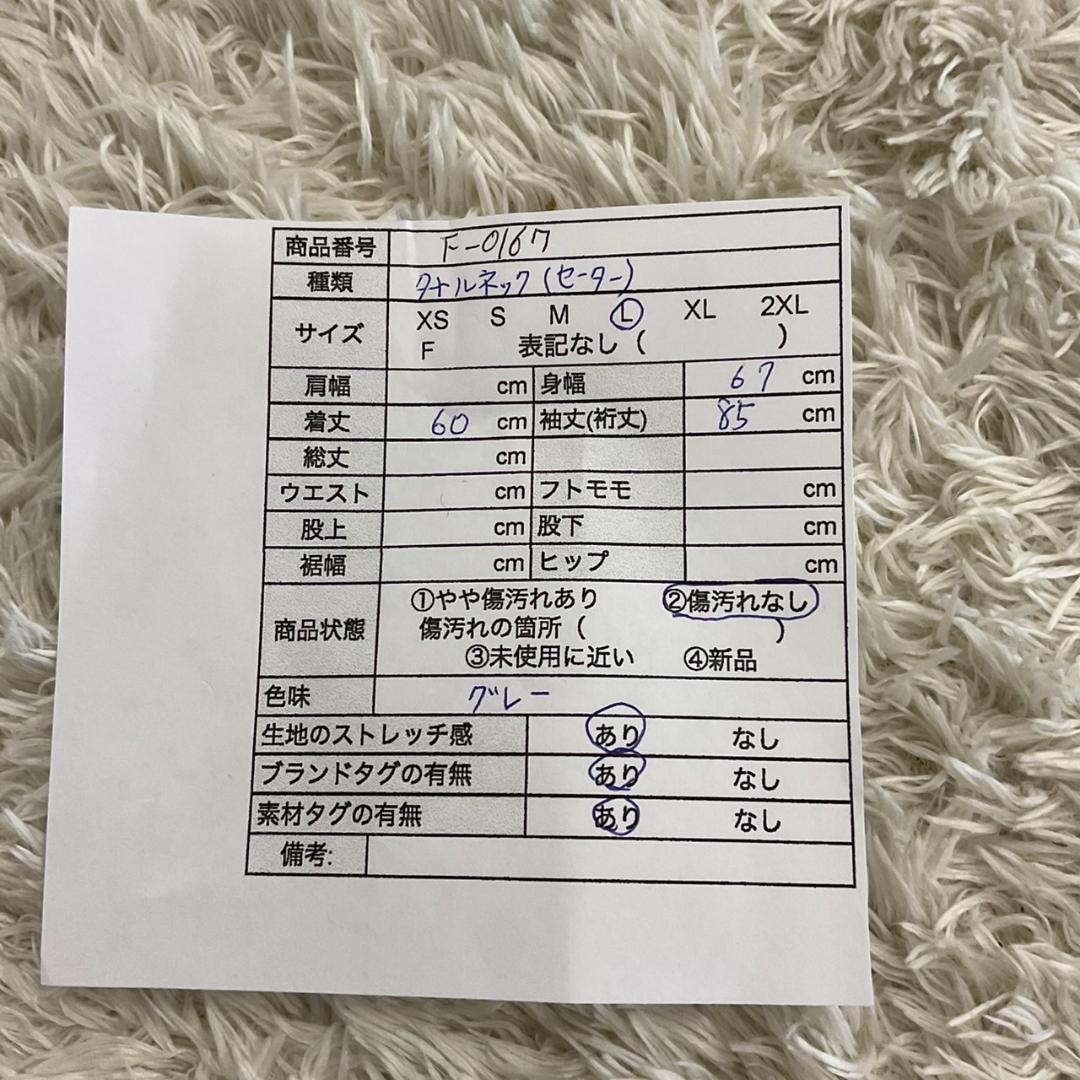 商品番号 F-0167
種類 タートルネック(セーター)
サイズ XS S M L XL 2XL
F 表記なし ( )
肩幅 cm 身幅 67 cm
着丈 60 cm 袖丈(裄丈) 85 cm
総丈 cm
ウエスト cm フトモモ cm
股上 cm 股下 cm
裾幅 cm ヒップ cm
商品状態 ①やや傷汚れあり ②傷汚れなし
傷汚れの箇所 ( )
③未使用に近い ④新品
色味 グレー
生地のストレッチ感 あり なし
ブランドタグの有無 あり なし
素材タグの有無 あり なし
備考: